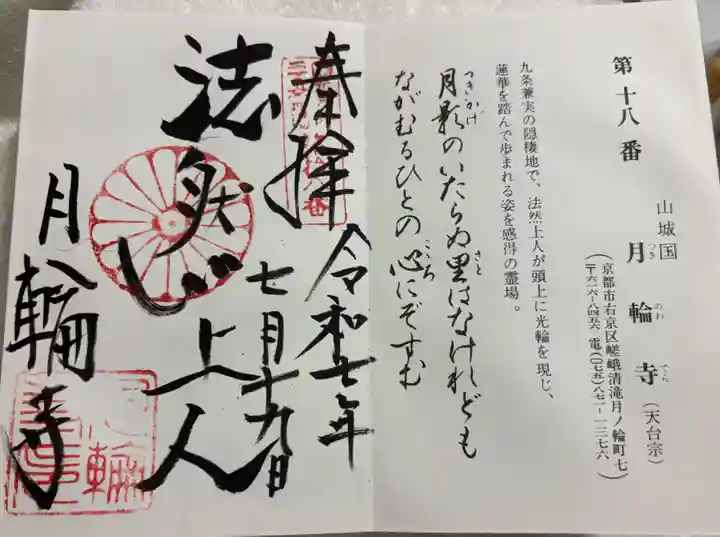 第十八番
山城国
月輪寺(天台宗)
つきのわでら
(京都市右京区嵯峨清滝月ノ輪町七
〒六一六-八四五六 電(〇七五)八七一-一三七六)
九条兼実の隠棲地で、法然上人が頭上に光輪を現じ、
蓮華を踏んで歩まれる姿を感得の霊場。
月影のいたらぬ里はなけれども
つきかげ
さと
ながむるひとの心にぞすむ
こころ
奉拝
令和七年
七月十九日
法然
上人
月輪寺